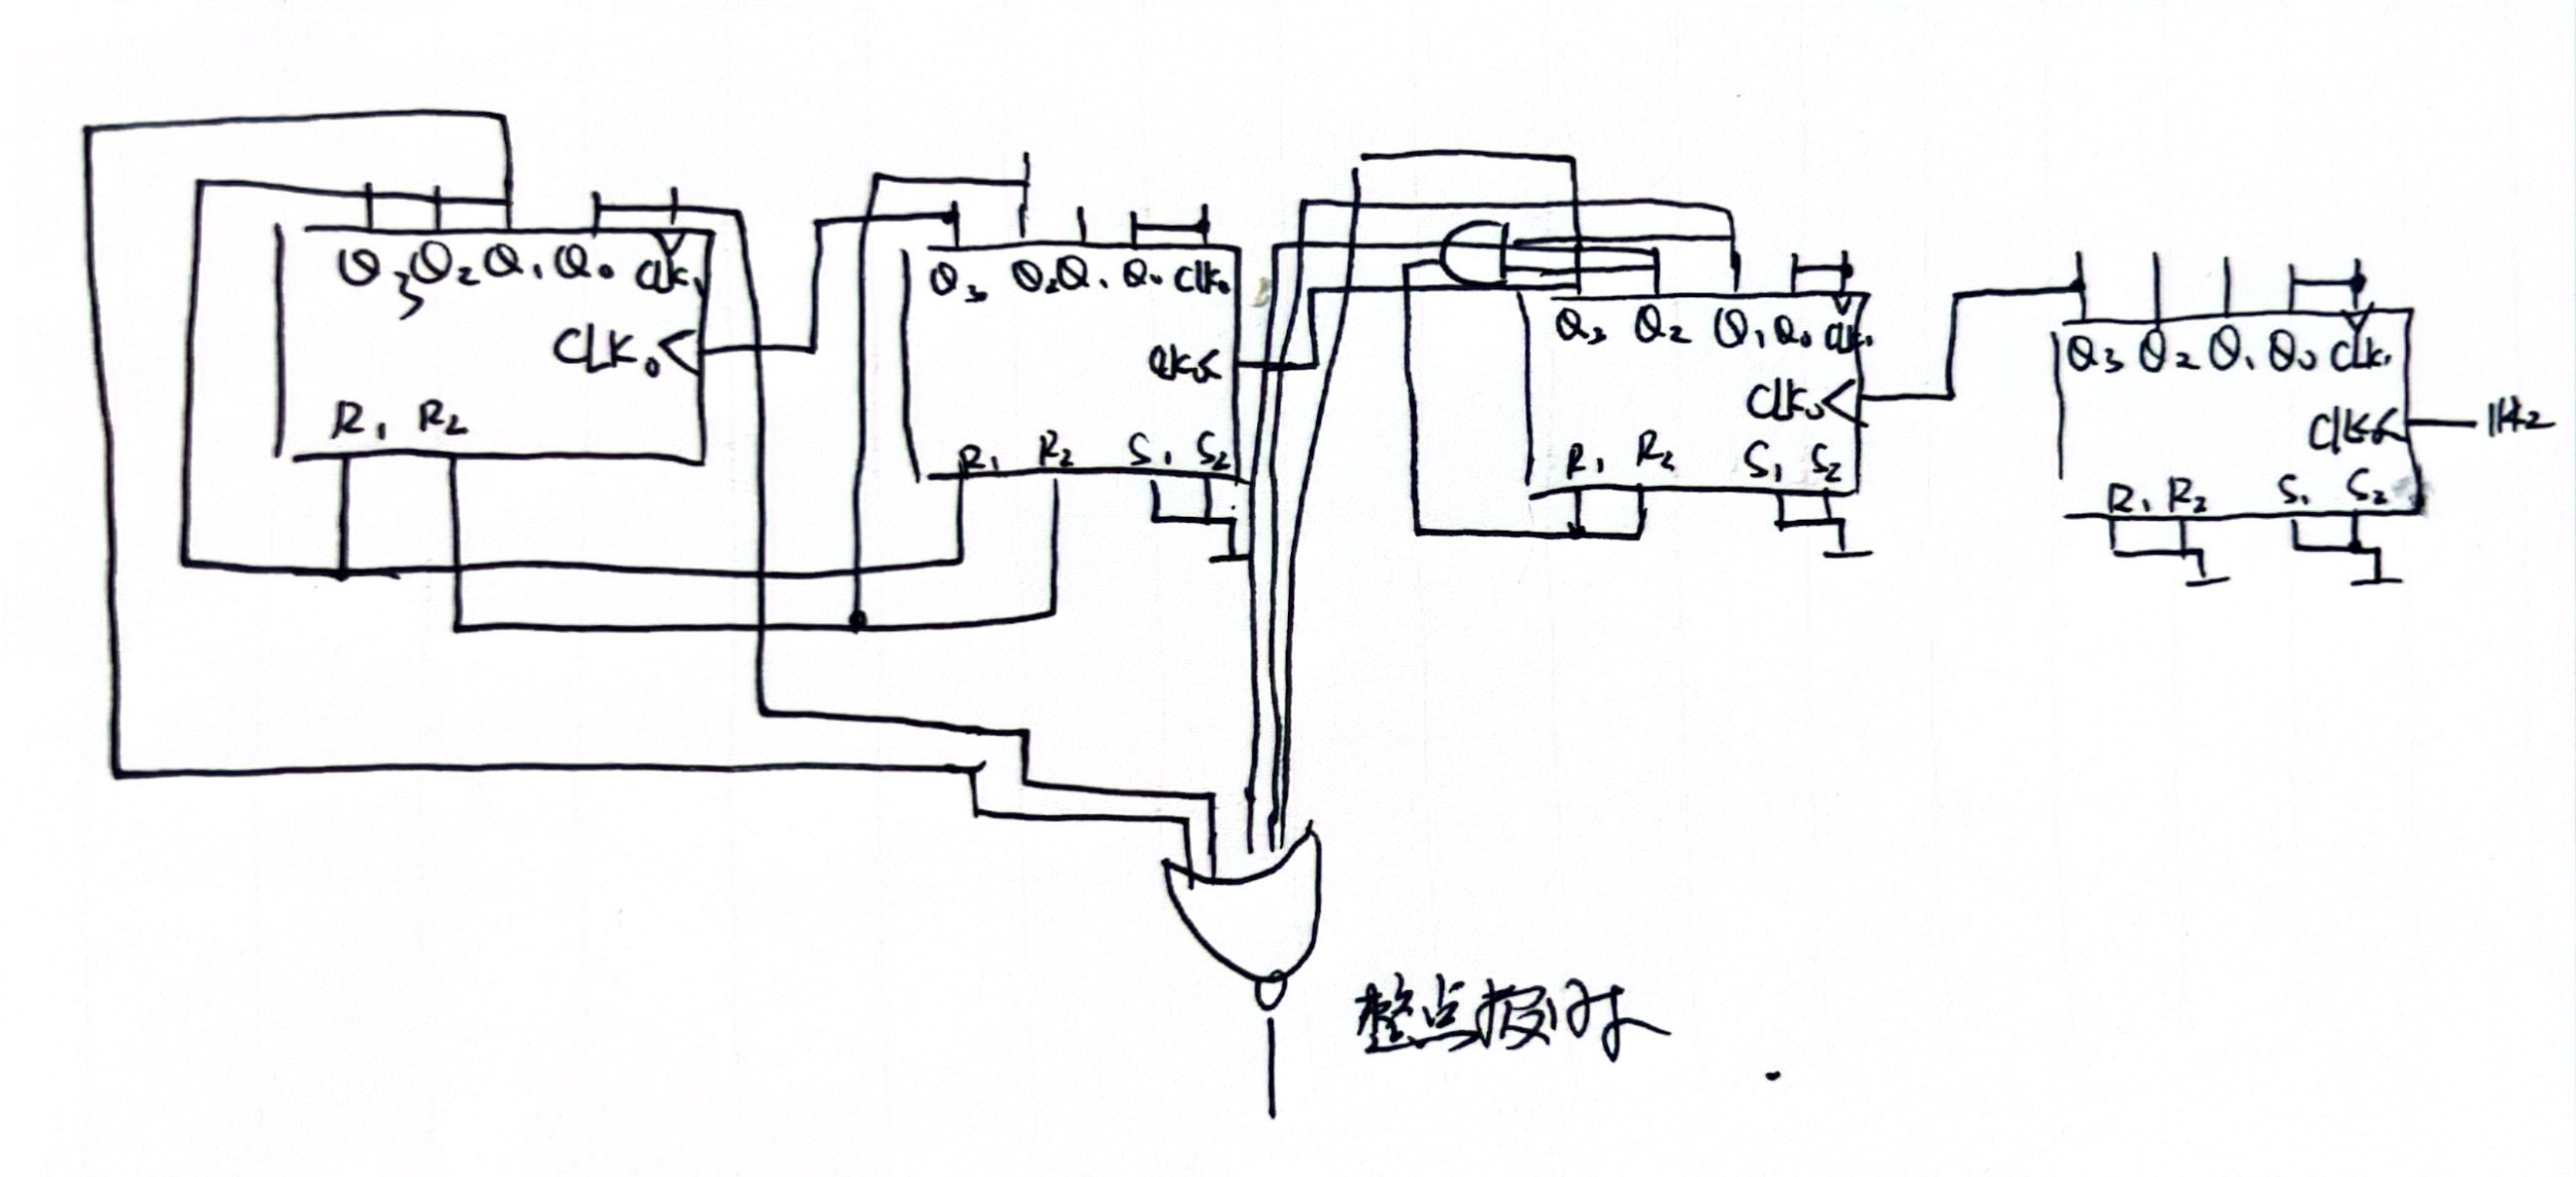 Q3 Q2 Q1 Q0 CLK1
CLK0
R1 R2
Q3 Q2 Q1 Q0 CLK1
CLK0
R1 R2 S1 S2
Q3 Q2 Q1 Q0 CLK1
CLK0
R1 R2 S1 S2
Q3 Q2 Q1 Q0 CLK1
CLK
1Hz
R1 R2 S1 S2
整点报时